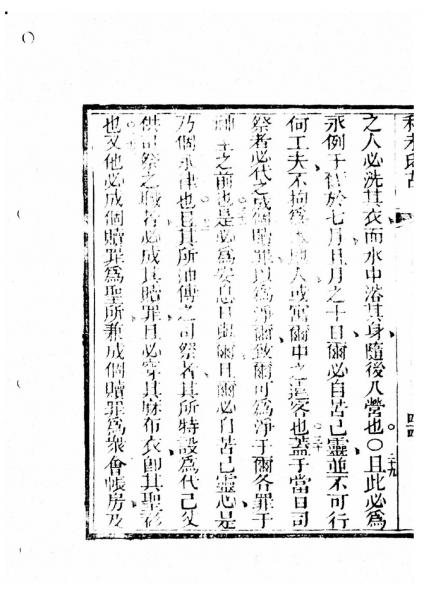 利未氏古 四四
之人必洗其衣而水中浴其身隨後入營也〇且此必爲 二九
永例于爾於七月且月之十日爾必自苦己靈並不可行
何工夫不拘爲本國人或寓爾中之遠客也蓋于當日司 三十
祭者必代之成個贖罪以爲淨爾致爾可爲淨于爾各罪于
神主之前也是必爲安息日與爾且爾必自苦己靈也是
乃個永律也且其所油傅之司祭者其所特設爲代己父
供司祭之職者必成其贖罪且必穿其麻布衣即其聖衫
也又他必成個贖罪爲聖所兼成個贖罪爲衆會帳房及